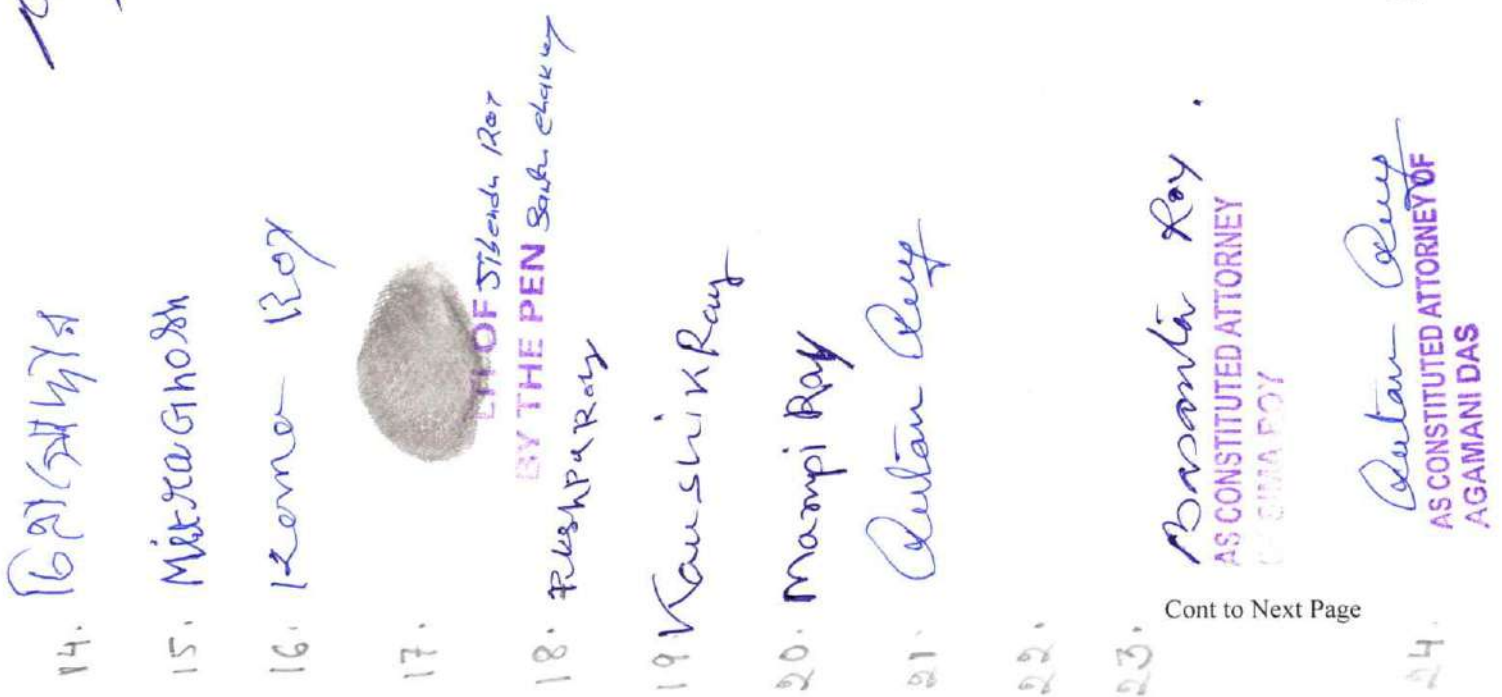 14.
15. Mitra Ghosh
16. Roy
17.
LTI OF Sibendu Roy
BY THE PEN
18. Pushpa Ray
19. Kaushik Ray
20. Mampi Ray
21.
22.
23. Basanta Roy.
AS CONSTITUTED ATTORNEY
OF SIMA ROY
Cont to Next Page
24.
AS CONSTITUTED ATTORNEY OF
AGAMANI DAS